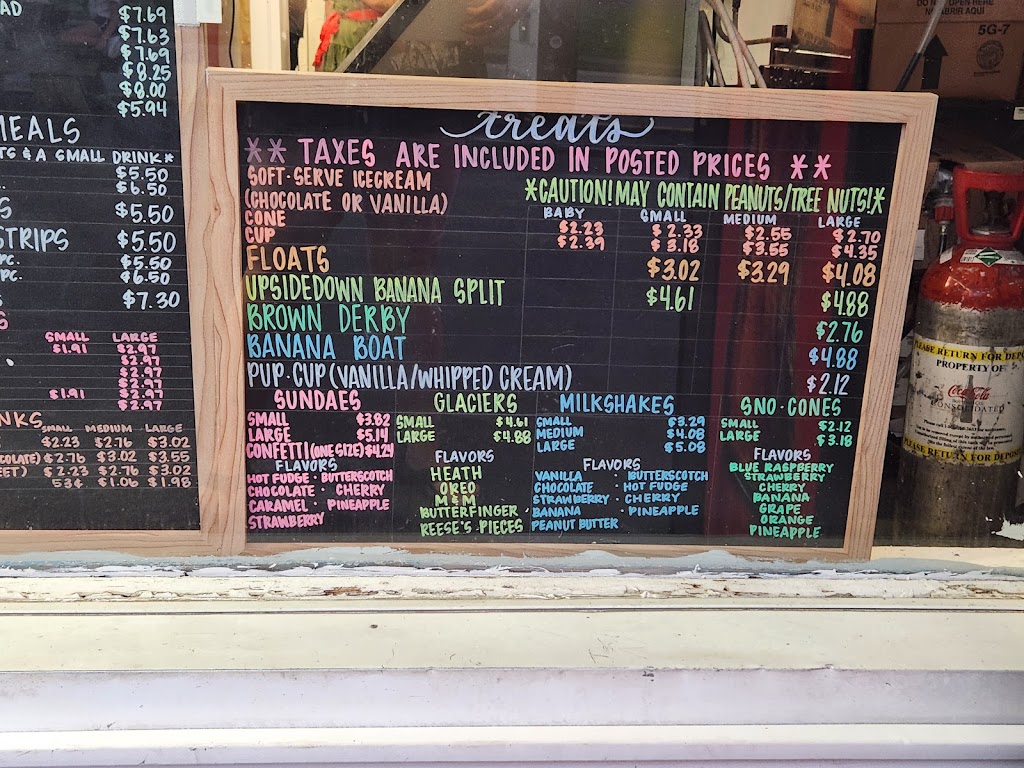 AD
$7.69
$7.63
7.69
$8.25
$8.00
$5.94
MEALS
TS & A SMALL DRINK*
$5.50
$6.50
S $5.50
STRIPS $5.50
PC. $5.50
PC. $6.50
S $7.30
S
SMALL LARGE
$1.91 $2.97
$2.97
$2.97
$2.97
$1.91 $2.97
$2.97
NKS SMALL MEDIUM LARGE
$2.23 $2.76 $3.02
COLATE) $2.76 $3.02 $3.55
EET) $2.23 $2.76 $3.02
53¢ $1.06 $1.98
treats
** TAXES ARE INCLUDED IN POSTED PRICES **
SOFT-SERVE ICECREAM
*CAUTION! MAY CONTAIN PEANUTS/TREE NUTS!*
(CHOCOLATE OR VANILLA)
BABY SMALL MEDIUM LARGE
CONE $2.23 $2.33 $2.55 $2.70
CUP $2.39 $3.18 $3.55 $4.35
FLOATS $3.02 $3.29 $4.08
UPSIDEDOWN BANANA SPLIT $4.61 $4.88
BROWN DERBY $2.76
BANANA BOAT $4.88
PUP-CUP (VANILLA/WHIPPED CREAM) $2.12
SUNDAES
SMALL $3.82
LARGE $5.14
CONFETTI (ONE SIZE) $4.24
FLAVORS
HOT FUDGE · BUTTERSCOTCH
CHOCOLATE · CHERRY
CARAMEL · PINEAPPLE
STRAWBERRY
GLACIERS
SMALL $4.61
LARGE $4.88
FLAVORS
HEATH
OREO
M & M
BUTTERFINGER
REESE'S PIECES
MILKSHAKES
SMALL $3.29
MEDIUM $4.08
LARGE $5.08
FLAVORS
VANILLA · BUTTERSCOTCH
CHOCOLATE · HOT FUDGE
STRAWBERRY · CHERRY
BANANA · PINEAPPLE
PEANUT BUTTER
SNO-CONES
SMALL $2.12
LARGE $3.18
FLAVORS
BLUE RASPBERRY
STRAWBERRY
CHERRY
BANANA
GRAPE
ORANGE
PINEAPPLE
OPEN HERE
ABRIR AQUI
5G-7
PLEASE RETURN FOR DEPO
PROPERTY OF
Coca-Cola
CONSOLIDATED
PLEASE RETURN FOR DEPOS